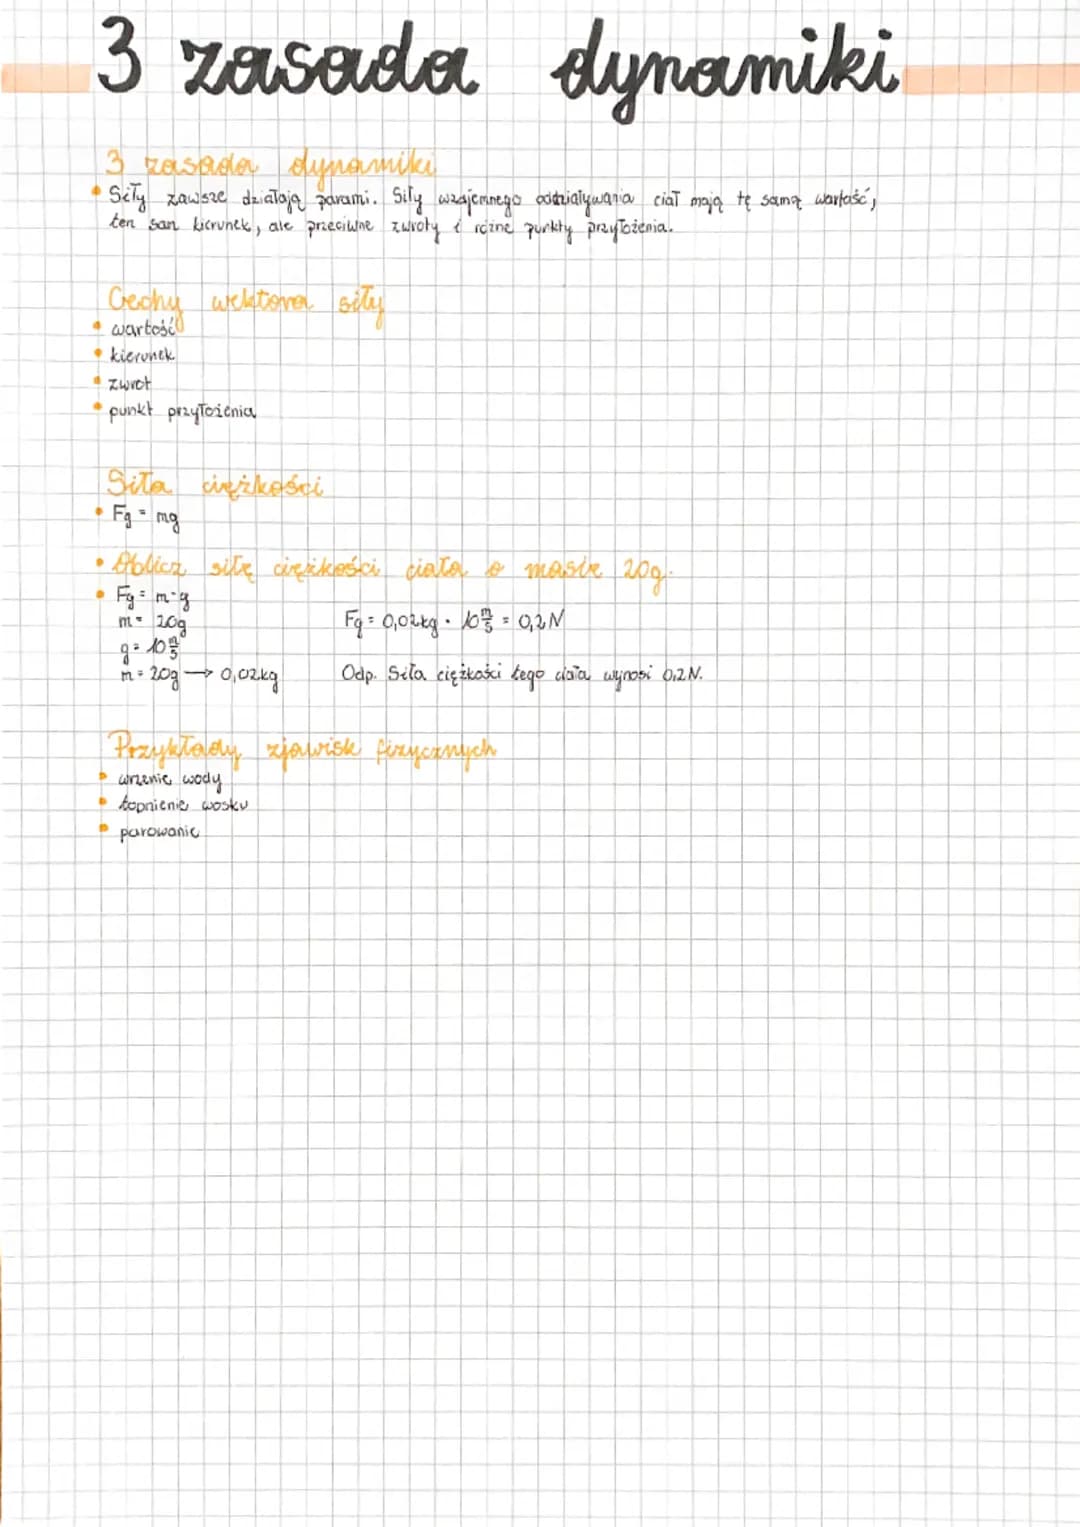 3 zasada dynamiki
3 zasada dynamiki
• Siły zawsze działają parami. Siły wzajemnego oddziaływania ciał mają tę samą wartość,
ten sam kierunek, ale przeciwne zwroty i różne punkty przyłożenia.
Cechy wektora siły
• wartość
• kierunek
• zwrot
• punkt przyłożenia
Siła ciężkości
• Fg = mg
• Oblicz siłę ciężkości ciała o masie 20g.
• Fg = m·g
m = 20g
Fg = 0,02kg · 10 m/s = 0,2N
g = 10 m/s
m = 20g → 0,02kg
Odp. Siła ciężkości tego ciała wynosi 0,2N.
Przykłady zjawisk fizycznych
• wrzenie wody
• topnienie wosku
• parowanie